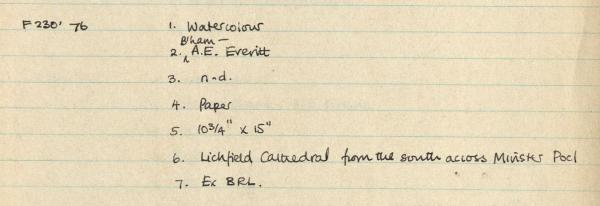 F 230' 76
1. Watercolour
2. B'ham — A.E. Everitt
3. n-d.
4. Paper
5. 10 3/4" x 15"
6. Lichfield Cathedral from the south across Minster Pool
7. Ex BRL.